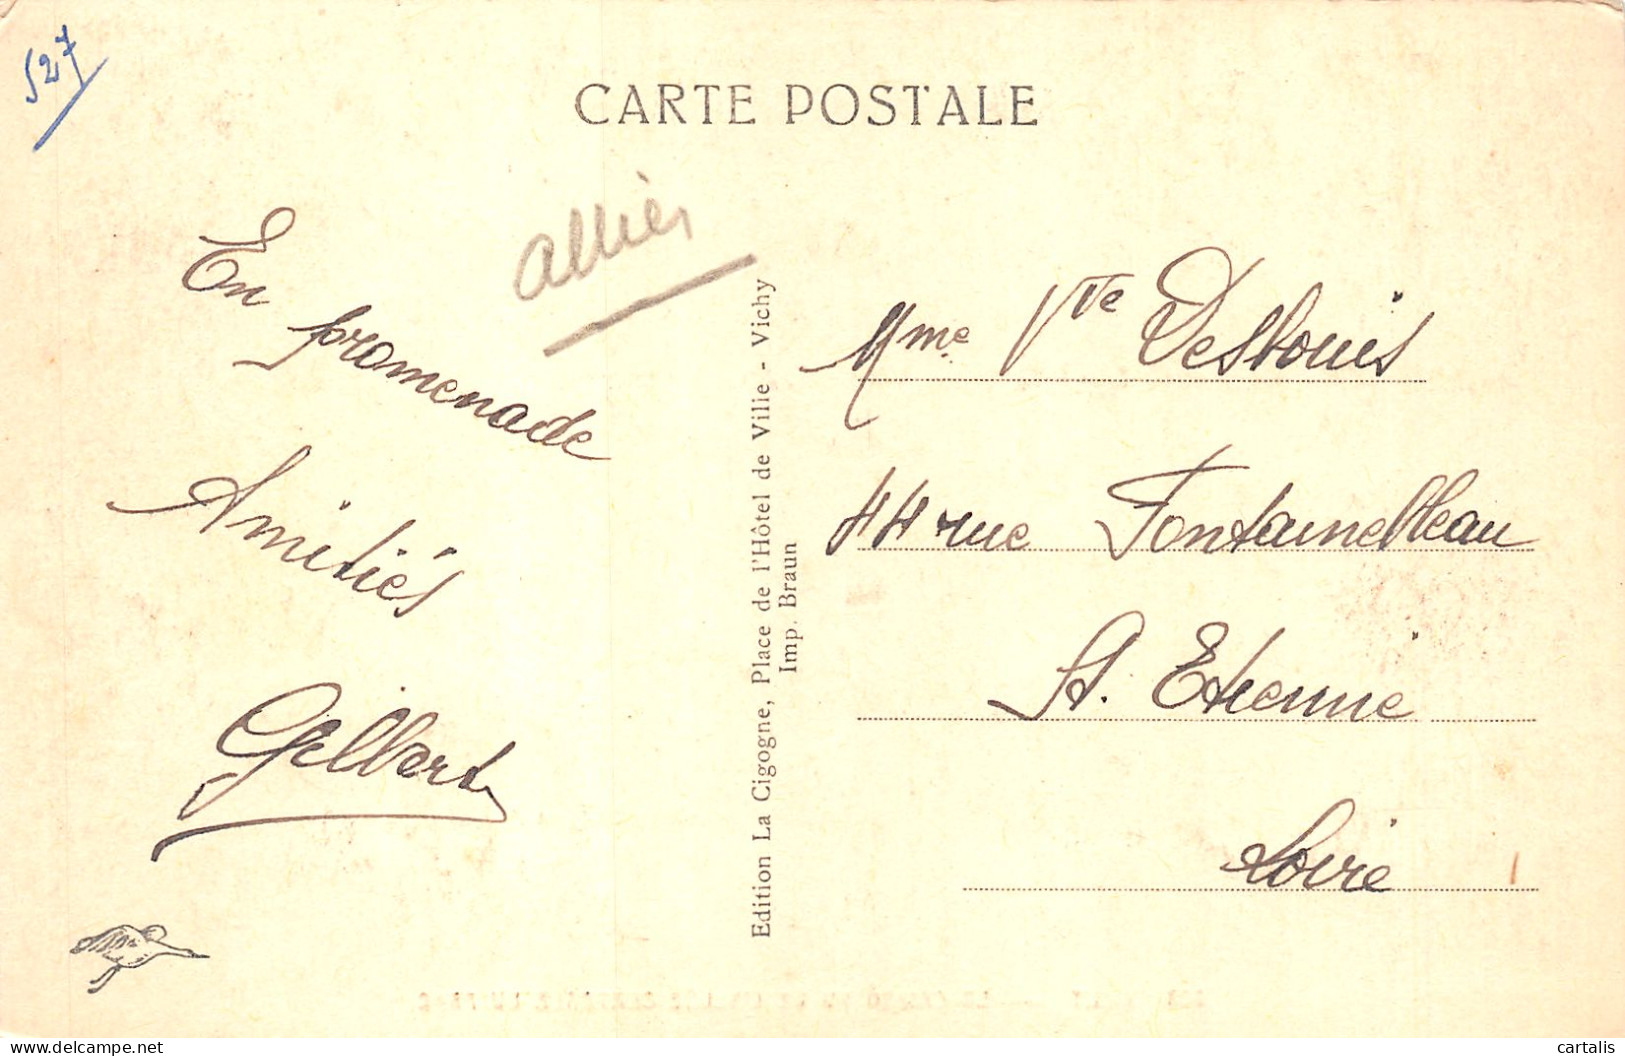 527
CARTE POSTALE
Allier
En
promenade
Amitiés
Gilbert
Edition La Cigogne, Place de l'Hôtel de Ville - Vichy
Imp. Braun
Mme Vve Deshouis
44 rue Fontainebleau
St. Etienne
Loire
www.delcampe.net
cartalis